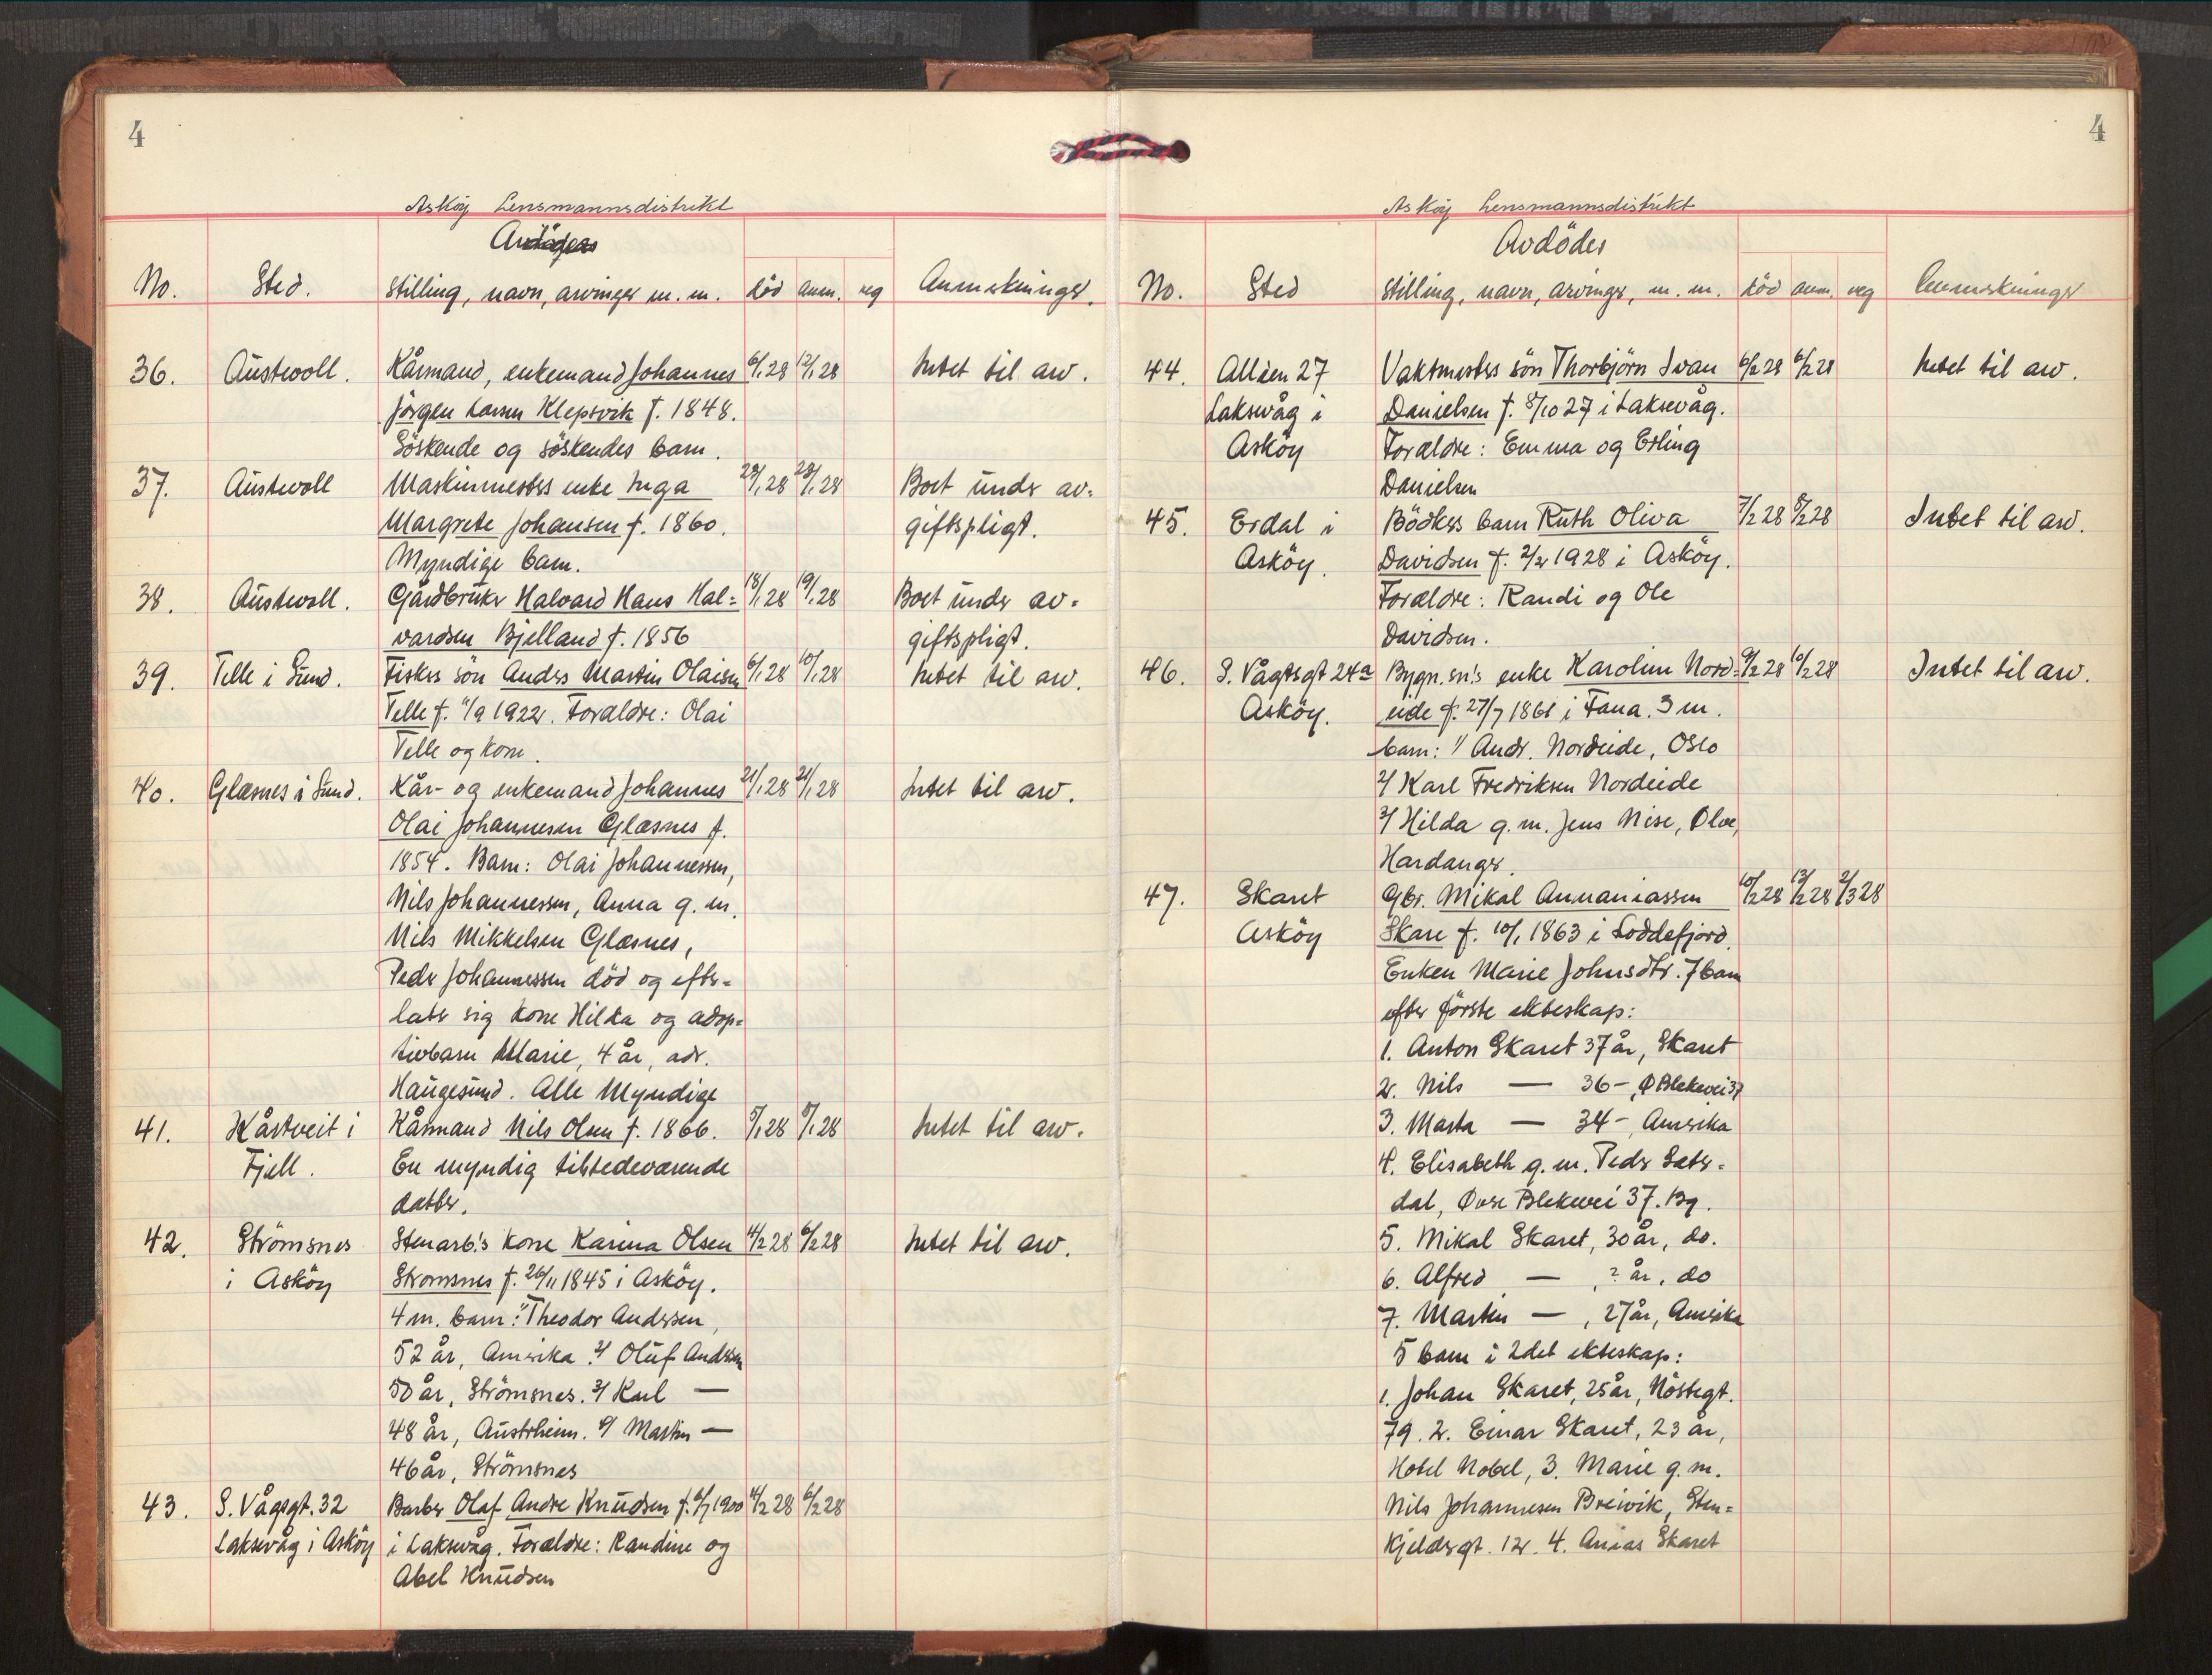 4
Askøy Lensmannsdistrikt
No.
Sted.
Stilling, navn, arvinger m. m.
död
anm.
reg
Anmerkninger.
36.
Austevoll.
Kårmand, enkemand Johannes
6/1 28
12/1 28
Intet til arv.
Jörgen Larsen Klepsvik f. 1848.
Söskende og söskendes barn.
37.
Austevoll
Maskinmesters enke Inga
29/1 28
Boet under av-
Margrete Johansen f. 1860.
giftspligt.
Myndige barn.
38.
Austevoll.
Gårdbruker Halvard Hans Hal-
18/1 28
19/1 28
Boet under av-
vardsen Bjelland f. 1856
giftspligt.
39.
Telle i Sund.
Fiskers sön Anders Martin Olaisen
6/1 28
10/1 28
Intet til arv.
Telle f. 11/9 1922. Forældre: Olai
Telle og kone.
40.
Glæsnes i Sund.
Kår- og enkemand Johannes
21/1 28
21/1 28
Intet til arv.
Olai Johannesen Glæsnes f.
1854. Barn: Olai Johannessen,
Nils Johannessen, Anna g. m.
Nils Mikkelsen Glæsnes,
Peder Johannessen död og efter-
later sig kone Hilda og adop-
tivbarn Marie, 4 år, adr.
Haugesund. Alle Myndige
41.
Kårtveit i
Kårmand Nils Olsen f. 1866.
5/1 28
5/1 28
Intet til arv.
Fjell.
En myndig tilstedeværende
datter.
42.
Strömsnes
Stenarb's kone Karina Olsen
4/2 28
6/2 28
Intet til arv.
i Asköy
Stromsnes f. 26/11 1845 i Asköy.
4 m. barn: 1/ Theodor Andersen,
52 år, Amerika. 2/ Oluf Andersen
50 år, Strömsnes. 3/ Karl —
48 år, Austrheim. 4/ Martin —
46 år, Strömsnes
43.
S. Vågsgt. 32
Barber Olaf Andre Knudsen f. 6/7 1900
4/2 28
6/2 28
Laksevåg i Asköy
i Laksevåg. Forældre: Randine og
Abel Knudsen
4
Askøy Lensmannsdistrikt
Avdödes
No.
Sted
Stilling, navn, arvinger, m. m.
död
anm.
reg
Anmerkninger
44.
Alléen 27
Vaktmesters sön Thorbjörn Ivan
6/2 28
6/2 28
Intet til arv.
Laksevåg i
Danielsen f. 8/10 27 i Laksevåg.
Asköy
Forældre: Emma og Erling
Danielsen
45.
Erdal i
Bödkers barn Ruth Oliva
7/2 28
8/2 28
Intet til arv.
Asköy.
Davidsen f. 2/2 1928 i Asköy.
Forældre: Randi og Ole
Davidsen.
46.
S. Vågsgt 24a
Bygn.sn's enke Karoline Nord-
9/2 28
10/2 28
Intet til arv.
Asköy.
eide f. 27/7 1861 i Fana. 3 m.
barn: 1/ Andr. Nordeide, Oslo
2/ Karl Fredriksen Nordeide
3/ Hilda g. m. Jens Nise, Ølve,
Hardanger.
47.
Skaret
Gbr. Mikal Annaniassen
10/2 28
13/2 28
2/3 28
Asköy
Skare f. 10/1 1863 i Loddefjord.
Enken Marie Johnsdtr. 7 barn
efter förste ekteskap:
1. Anton Skaret 37 år, Skaret
2. Nils — 36 –, Ø Blekevei 37
3. Marta — 34 –, Amerika
4. Elisabeth g. m. Peder Sæter-
dal, Øvre Blekevei 37. Bg.
5. Mikal Skaret, 30 år, do.
6. Alfred — , ? år, do
7. Martin — , 27 år, Amerika
5 barn i 2det ekteskap:
1. Johan Skaret, 25 år, Nöstegt.
79. 2. Einar Skaret, 23 år,
Hotel Nobel, 3. Marie g. m.
Nils Johannesen Breivik, Sten-
kjeldergt. 12. 4. Anias Skaret